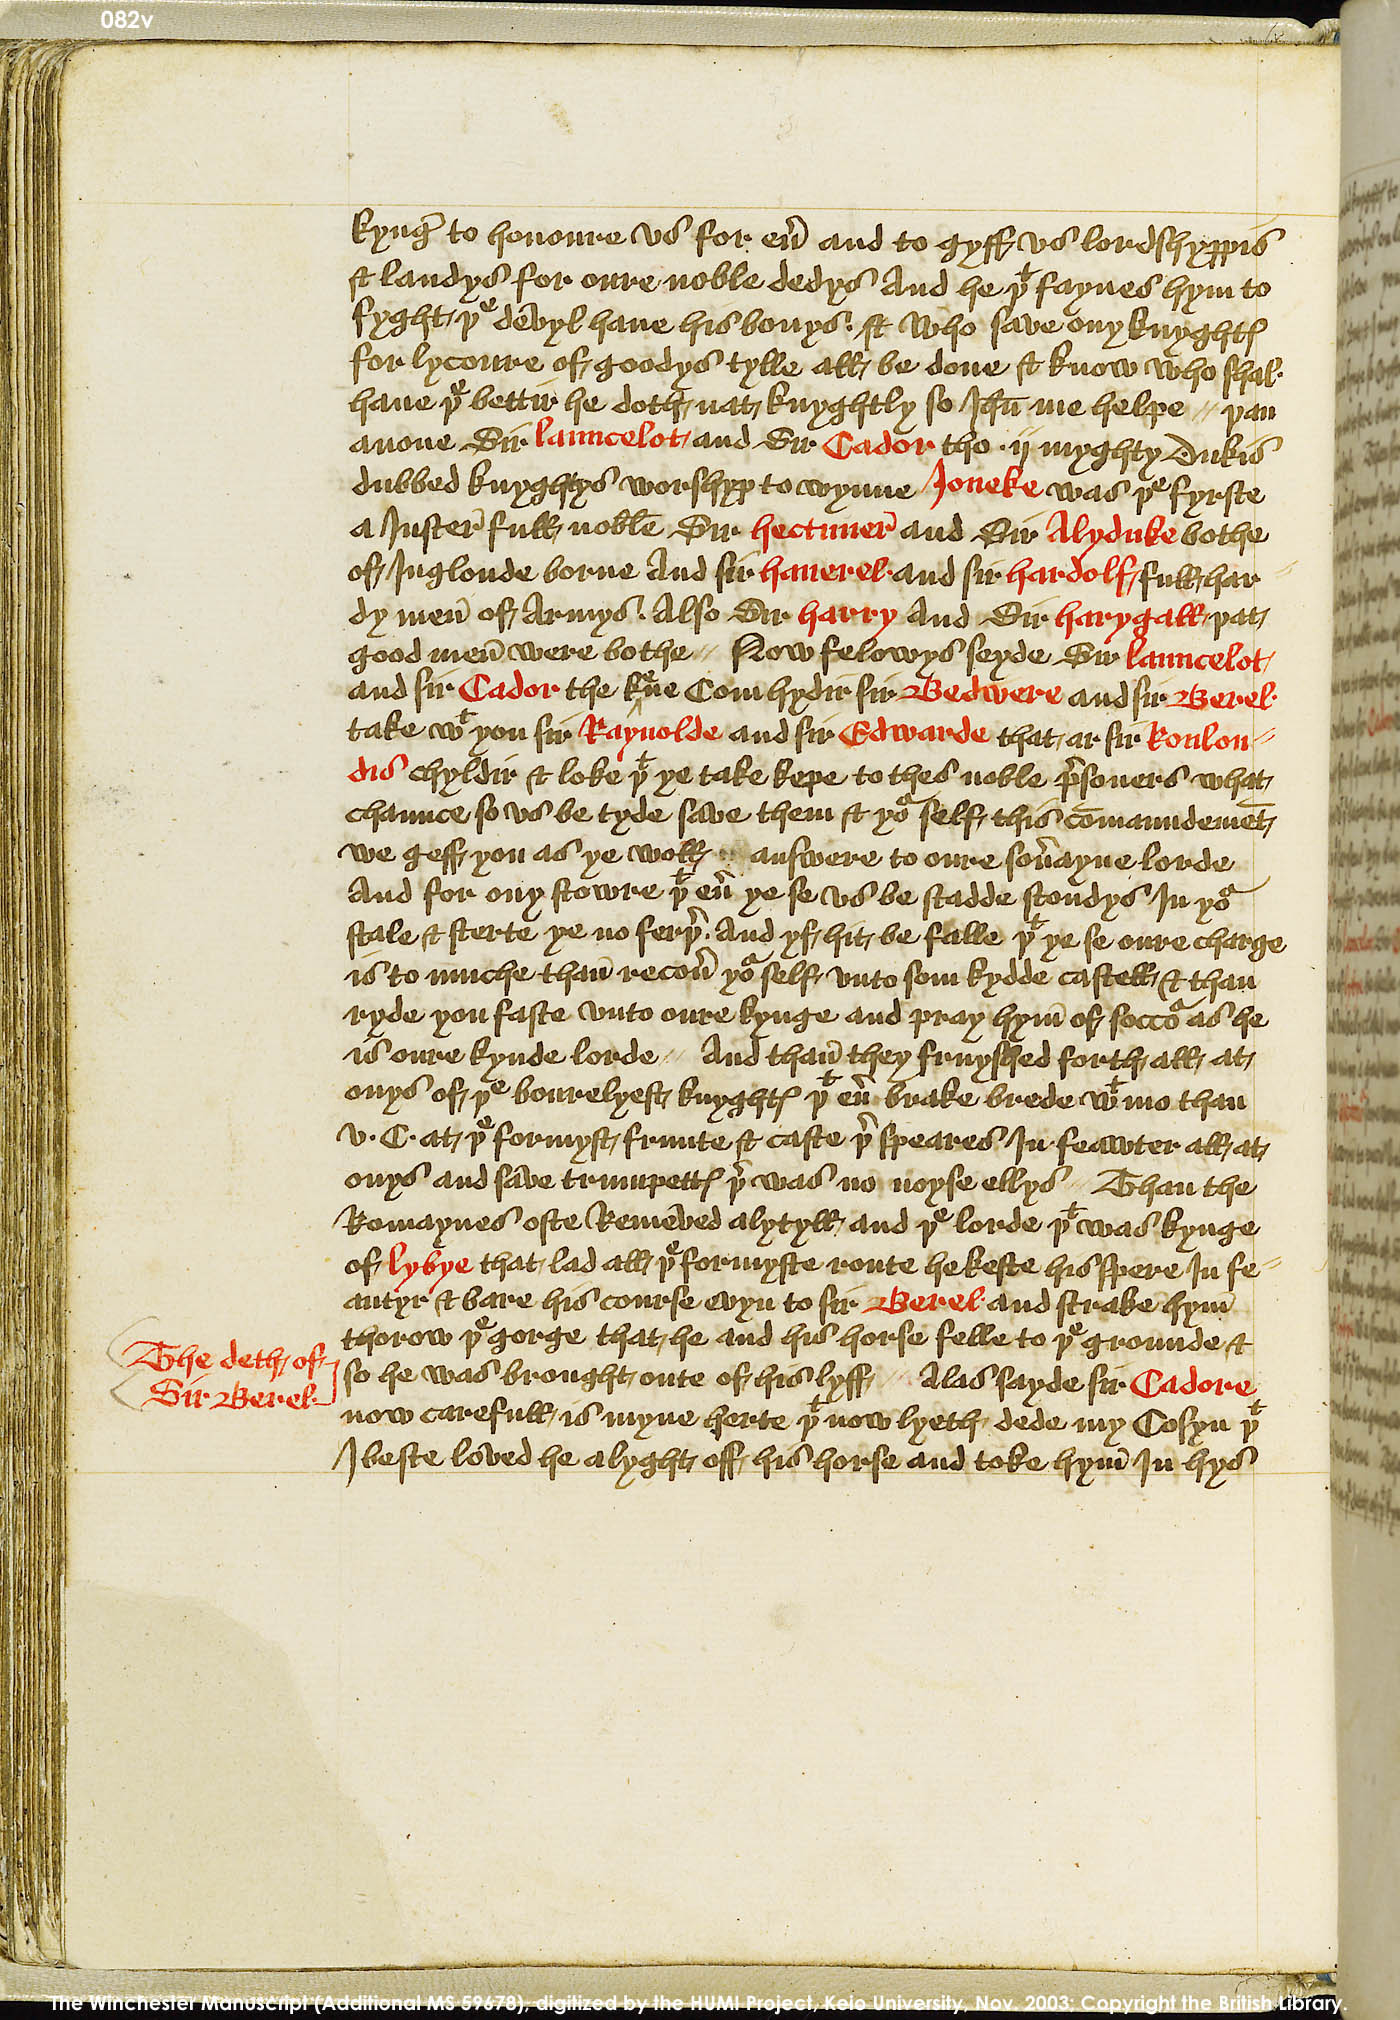 082v
kynge to honoure vs for eũ and to gyff vs lordshyppis
& landys for oure noble dedys And he þͭ faynes hym to
fyght þͤ devyl haue his bonys. & Who save ony knyghtꝭ
for lycoure of goodys tylle all be done & know who shal
haue þͤ bettir he doth nat knyghtly so Jħu me helpe // þan
anone Sir launcelot and Sir Cador tho .ij. myghty Dukis
dubbed knyghtys worshyp to wynne Joneke was þͤ fyrste
a Juster full noble Sir hectimer and Sir Alyduke bothe
of Inglonde borne And sir hamerel and sir hardolf full har //
dy men of Armys. Also Sir harry And Sir harygall þat
good men were bothe // Now felowys seyde Sir launcelot
and sir Cador the kͤne Com hydir sir Bedwere and sir Berel
take wͭ you sir Raynolde and sir Edwarde that ar sir Roulon //
dis chyldir & loke þͭ ye take kepe to thes noble p̄soners what
chaunce so vs be tyde save them & yoͬ self this com̄aundemēt
we geff you as ye woll // answere to oure soũayne lorde
And for ony stowre þͭ eũ ye se vs be stadde stondys In yoͬ
stale & sterte ye no ferþ̄. And yf hit be falle þͭ ye se oure charge
is to muche than̄ recoũ yoͬ self vnto som kydde castell & than
ryde you faste vnto oure kynge and pray hym̄ of soccoͬ as he
is oure kynde lorde // And than̄ they fruyshed forth all at
onys of þͤ bourelyest knyghtꝭ þͭ eũ brake brede wͭ mo than
v. C. at þͤ formyst frunte & caste þ̄ speares In feawter all at
onys and save trumpettꝭ þ̄ was no noyse ellys // Than the
Romaynes oste Remeved a lytyll and þͤ lorde þͭ was kynge
of lybye that lad all þͤ formyste route he keste his spere In fe //
autyr & bare his course evyn to sir Berel and strake hym̄
thorow þͤ gorge that he and his horse felle to þͤ grounde &
so he was brought oute of his lyff // Alas sayde sir Cadore
now carefull is myne herte þͭ now lyeth dede my Cosyn þͭ
I beste loved he alyght off his horse and toke hym̄ In hys
The deth of
Sir Berel
The Winchester Manuscript (Additional MS 59678), digitized by the HUMI Project, Keio University, Nov. 2003; Copyright the British Library.